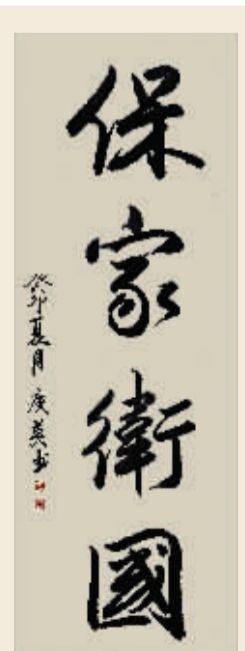 保家衛國
癸卯夏月 庚英书